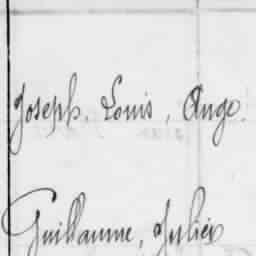 Joseph, Louis, Ange.
Guillaume, Julien